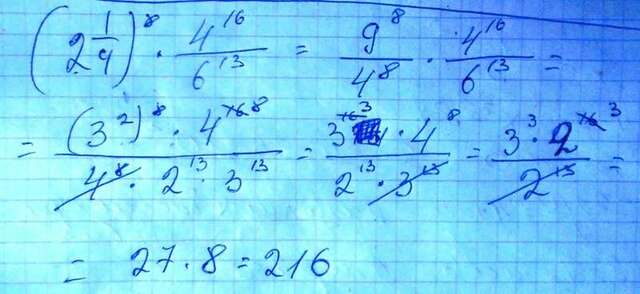 (2 1/4)^8 · 4^16/6^13 = 9^8/4^8 · 4^16/6^13 =
= (3^2)^8 · 4^16 8/4^8 · 2^13 · 3^13 = 3^16 3 · 4^8/2^13 · 3^13 = 3^3 · 2^16 3/2^13 =
= 27 · 8 = 216